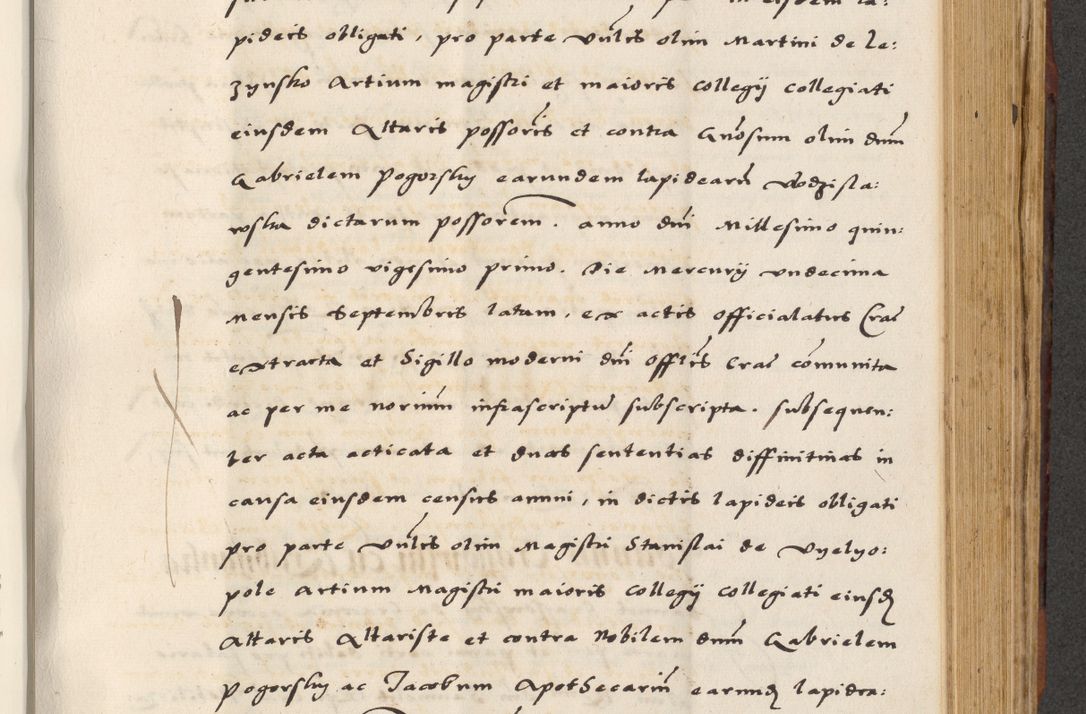 pideis obligati, pro parte Vnlis olim Martini de Le:
zynsko Artium magistri et maioris collegij collegiati
eiusdem Altaris possoris et contra Gnosum olim dnm
Gabrielem Pogorsky earundem lapidearū Wodzisla:
wska dictarum possorem. anno dni Millesimo quin:
gentesimo vigesimo primo. Die Mercurij vndecima
Mensis Septembris latam, ex actis officialatus Cras
extracta et Sigillo moderni dni offlis Cras cōmunita
ac per me norium infrascriptū subscripta. subsequen:
ter acta acticata et duas sententias diffinitiuas in
causa eiusdem census annui, in dictis lapideis obligati
pro parte Vnlis olim Magistri Stanislai de Vyelyo:
pole Artium Magistri maioris collegij collegiati eiusd
Altaris Altariste et contra Nobilem dnm Gabrielem
Pogorsky ac Jacobum Apothecariū earund lapidea: